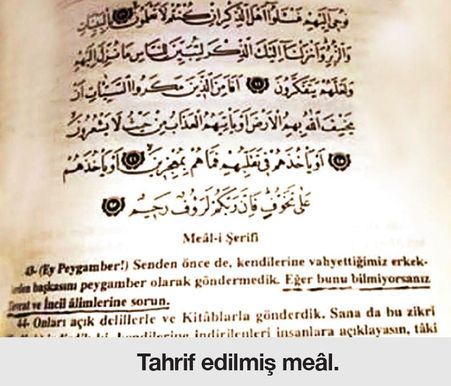 نُوحِي إِلَيْهِمْ فَسْئَلُوا أَهْلَ الذِّكْرِ إِنْ كُنْتُمْ لَا تَعْلَمُونَ
وَالزُّبُرِ وَأَنْزَلْنَا إِلَيْكَ الذِّكْرَ لِتُبَيِّنَ لِلنَّاسِ مَا نُزِّلَ إِلَيْهِمْ
وَلَعَلَّهُمْ يَتَفَكَّرُونَ أَفَأَمِنَ الَّذِينَ مَكَرُوا السَّيِّئَاتِ أَنْ
يَخْسِفَ اللّٰهُ بِهِمُ الْأَرْضَ أَوْ يَأْتِيَهُمُ الْعَذَابُ مِنْ حَيْثُ لَا يَشْعُرُونَ
أَوْ يَأْخُذَهُمْ فِي تَقَلُّبِهِمْ فَمَا هُمْ بِمُعْجِزِينَ أَوْ يَأْخُذَهُمْ
عَلَى تَخَوُّفٍ فَإِنَّ رَبَّكُمْ لَرَؤُفٌ رَحِيمٌ
Meâl-i Şerifi
43- (Ey Peygamber!) Senden önce de, kendilerine vahyettiğimiz erkek-
lerden başkasını peygamber olarak göndermedik. Eğer bunu bilmiyorsanız
Tevrat ve İncil âlimlerine sorun.
44- Onları açık delillerle ve Kitâblarla gönderdik. Sana da bu zikri
kendilerine indirilenleri insanlara açıklayasın, tâki
Tahrif edilmiş meâl.